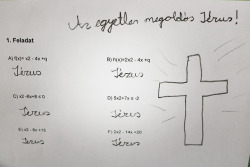 Az egyetlen megoldás Jézus!
1. Feladat
A) f(x)= x2 - 4x +q
B) f(x)=2x2 - 4x +q
Jézus
Jézus
C) x2 -6x+8 ≤ 0
D) 5x2+7x ≥ -2
Jézus
Jézus
E) x2 - 6x +13
F) 2x2 - 14x +20
Jézus
Jézus